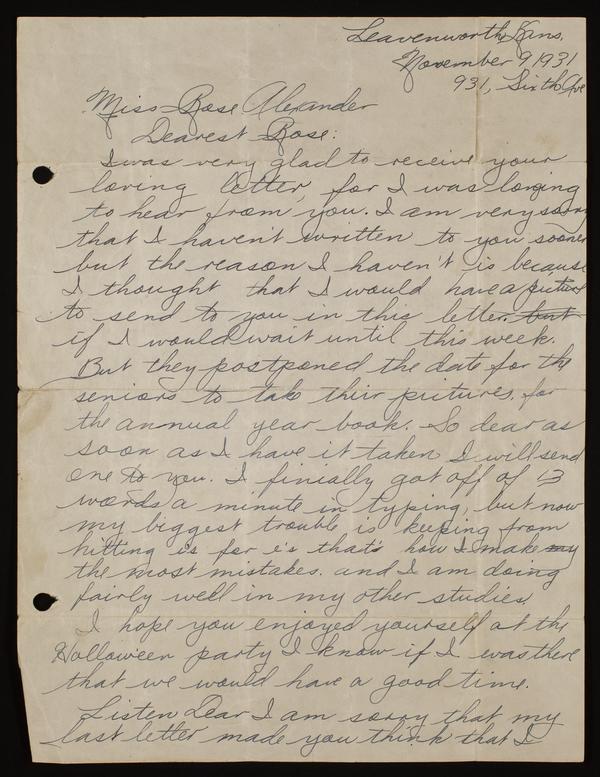 Leavenworth, Kans.
November 9, 1931
931, Sixth Ave
Miss Rose Alexander
Dearest Rose:
I was very glad to receive your
loving letter, for I was longing
to hear from you. I am very sorry
that I haven't written to you sooner
but the reason I haven't is because
I thought that I would have a picture
to send to you in this letter. but
if I would wait until this week.
But they postponed the date for the
seniors to take thier pictures, for
the annual year book. So dear as
soon as I have it taken I will send
one to you. I finially got off of 13
words a minute in typing, but now
my biggest trouble is keeping from
hitting i's for e's that's how I make my
the most mistakes. and I am doing
fairly well in my other studies.
I hope you enjoyed yourself at the
Halloween party I know if I was there
that we would have a good time.
Listen Dear I am sorry that my
last letter made you think that I